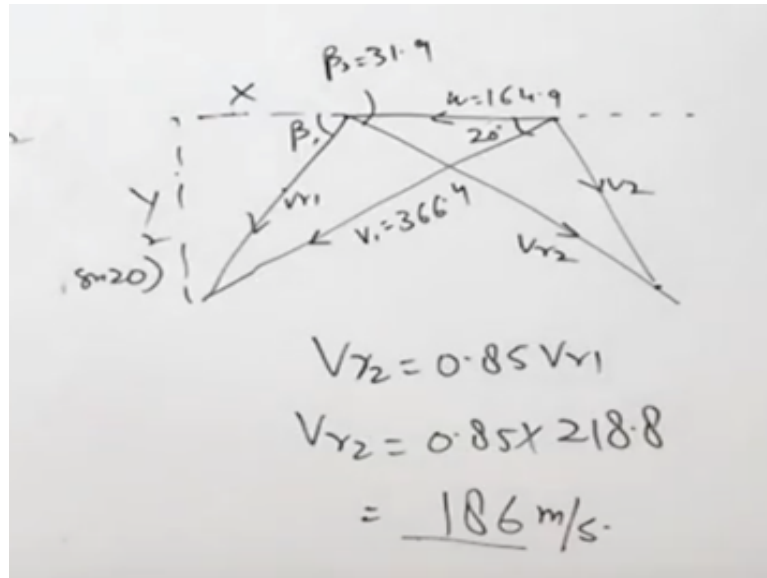 β₂=31.9
X
u=164.9
β₁
20°
Y
Vr1
V₁=366.4
V2
Vr2
sin20)
Vr₂ = 0.85 Vr1
Vr₂ = 0.85 X 218.8
= 186 m/s.